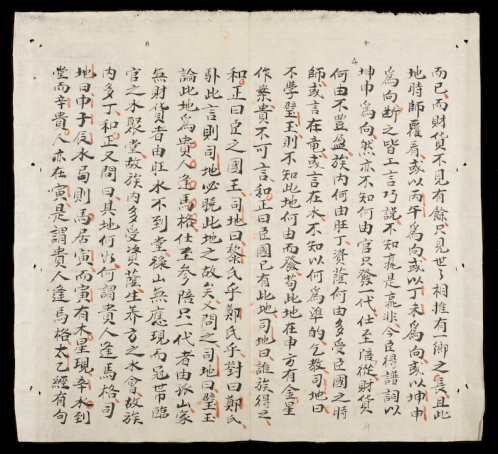 而已而財貨不見有餘只見世々相推有一鄉之長且此
地時師覆葬或以丙午為向或以丁未為向或以坤申
為向斷之皆工言巧說不知孰是孰非今臣得譜詞以
坤申為向然亦不知何由官只發一代仕至陪從財貨
何由不豊盈族内何由旺丁資蔭何由多受臣國之時
師或言在竜或言在水不知以何為準的乞教司地曰
不學璧玉則不知此地何由而發葢此地在申方有金星
作案貴不可言和正曰臣國已有此地司地曰誰族得之
和正曰臣之國王司地曰黎氏乎鄭氏乎對曰鄭氏
卦此言則司地必曉此地之故矣人問之司地曰璧玉
論此地為貴人逢馬格仕至參陪只一代者由孤山家
無財貨者由旺水不到堂祿山無應現而冠帯臨
官之水聚堂故族内多受資蔭生养方之水會故族
内多丁和正又問曰其地何以謂貴人逢馬格司
地曰申子辰水局則馬居寅而寅有木星現辛水到
堂而辛貴人亦在寅是謂貴人逢馬格太乙經有句